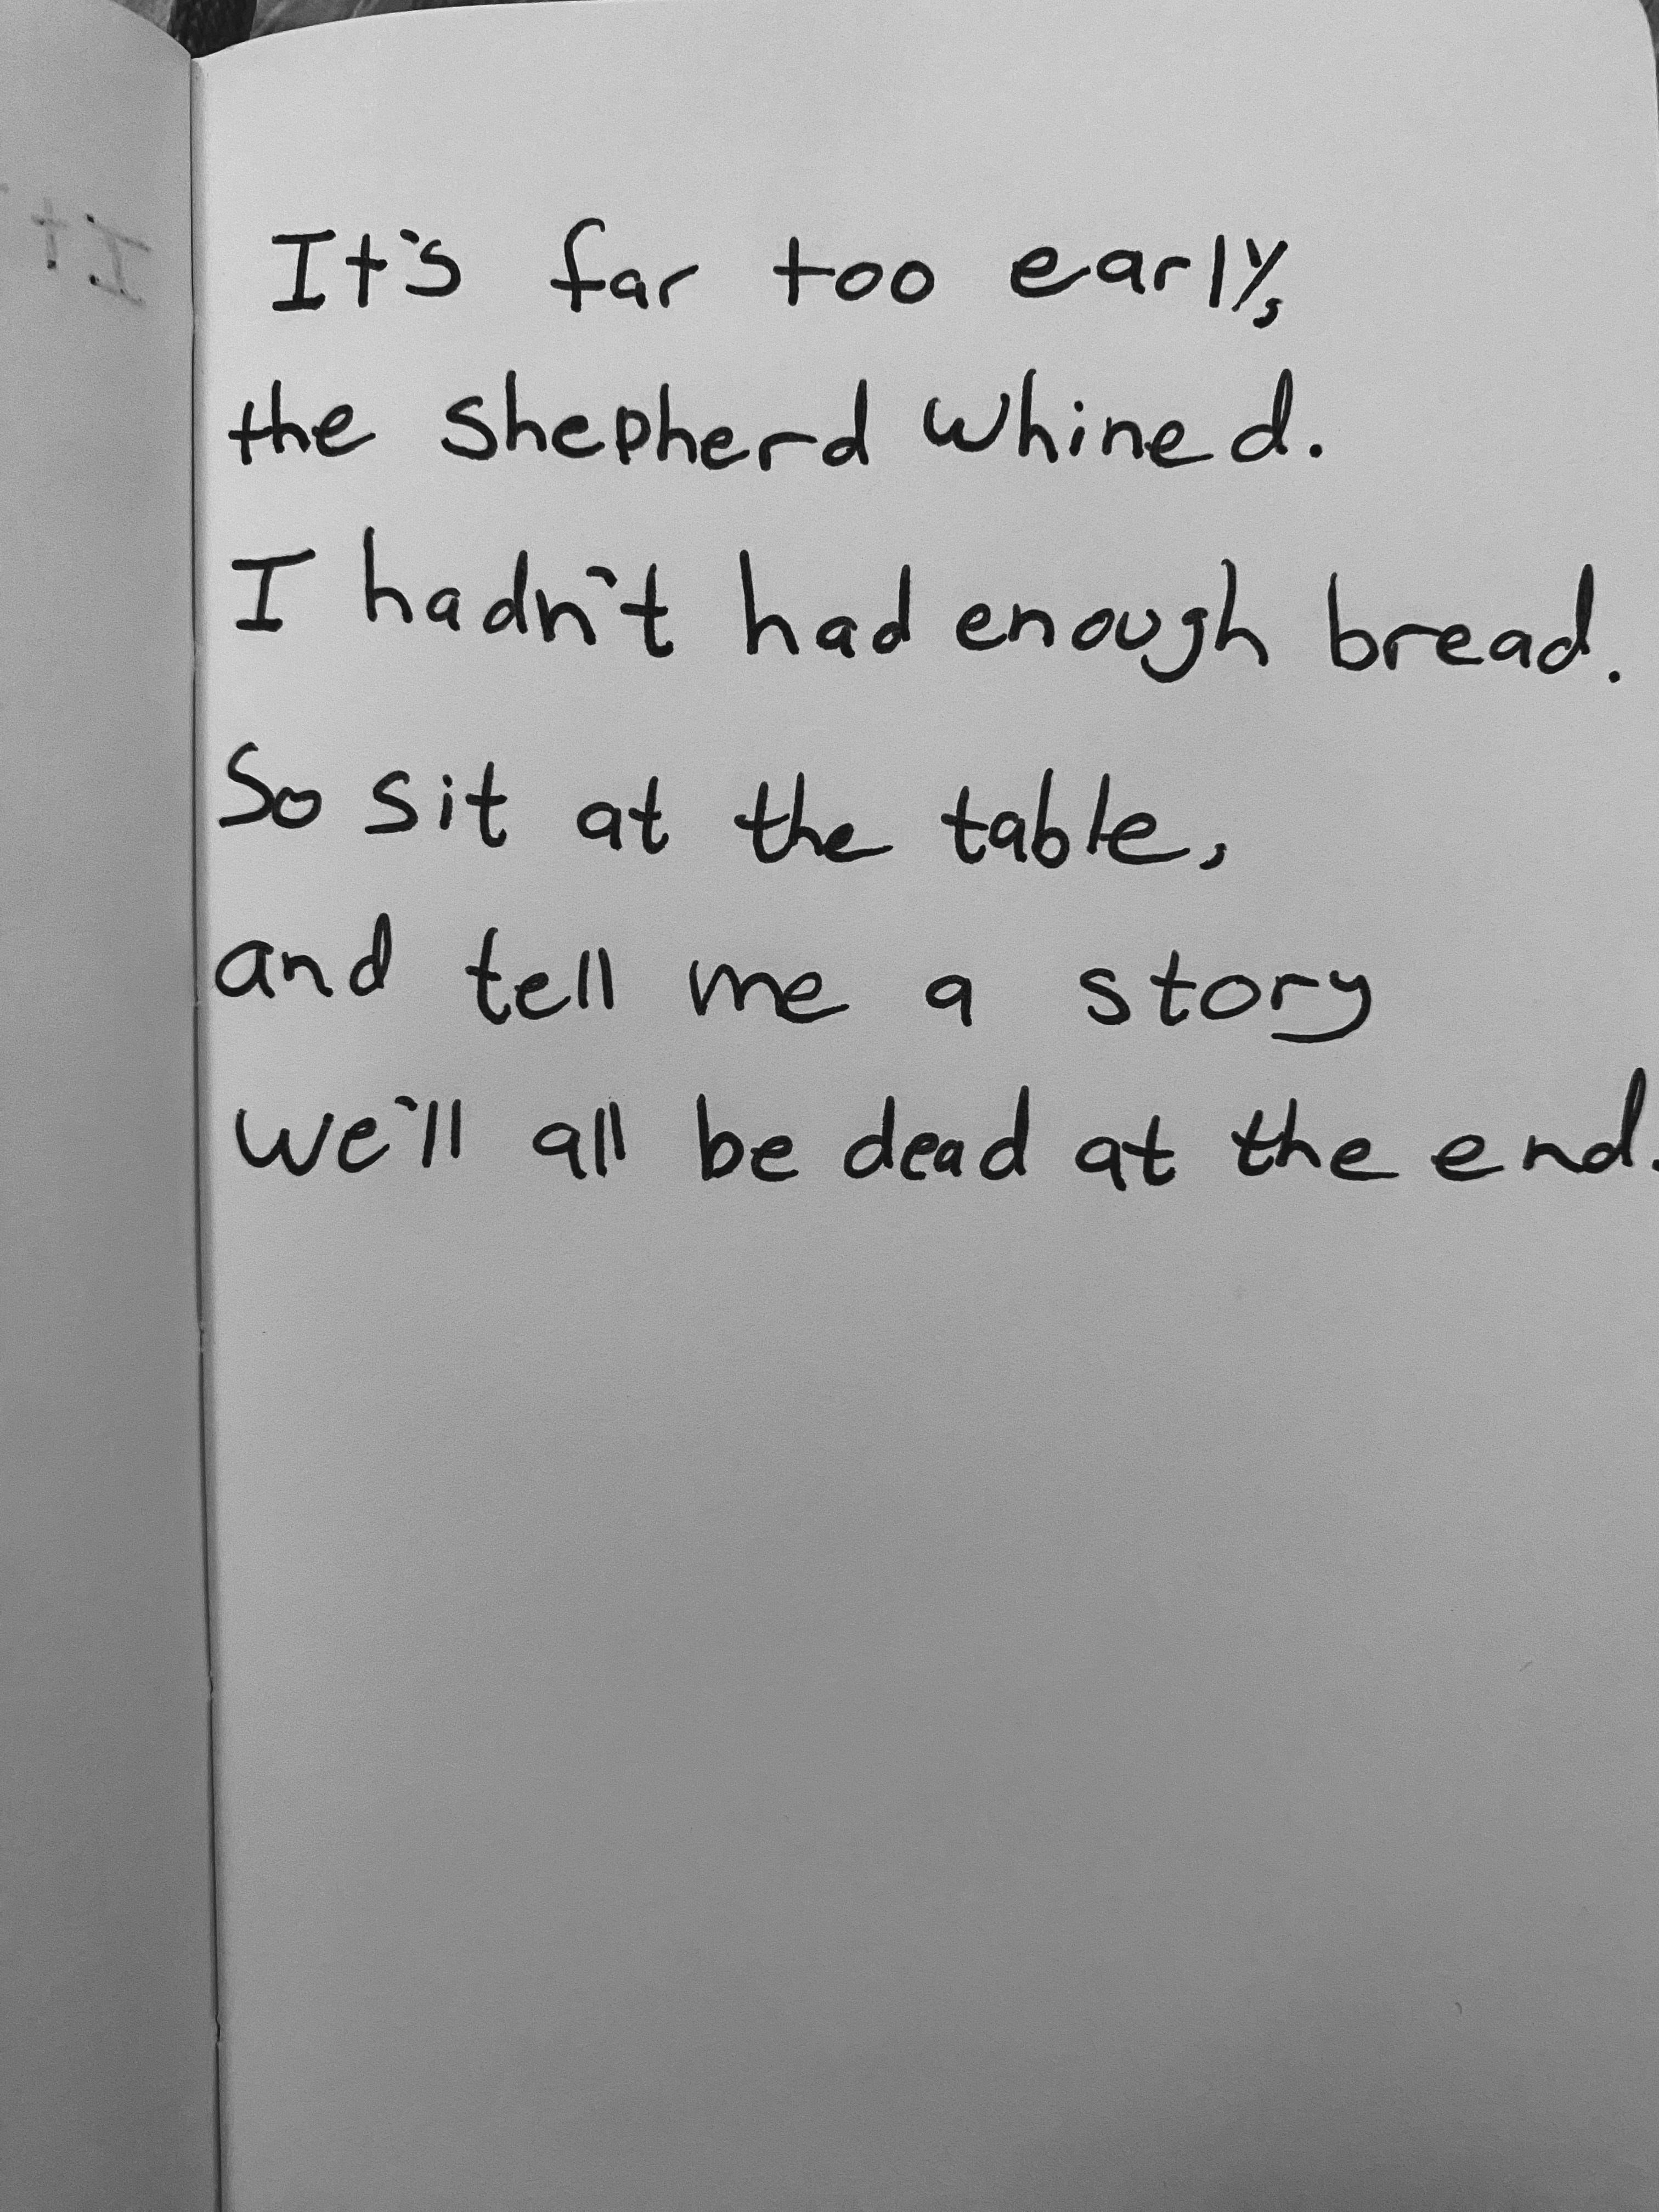 It's far too early,
the shepherd whined.
I hadn't had enough bread.
So sit at the table,
and tell me a story
we'll all be dead at the end.